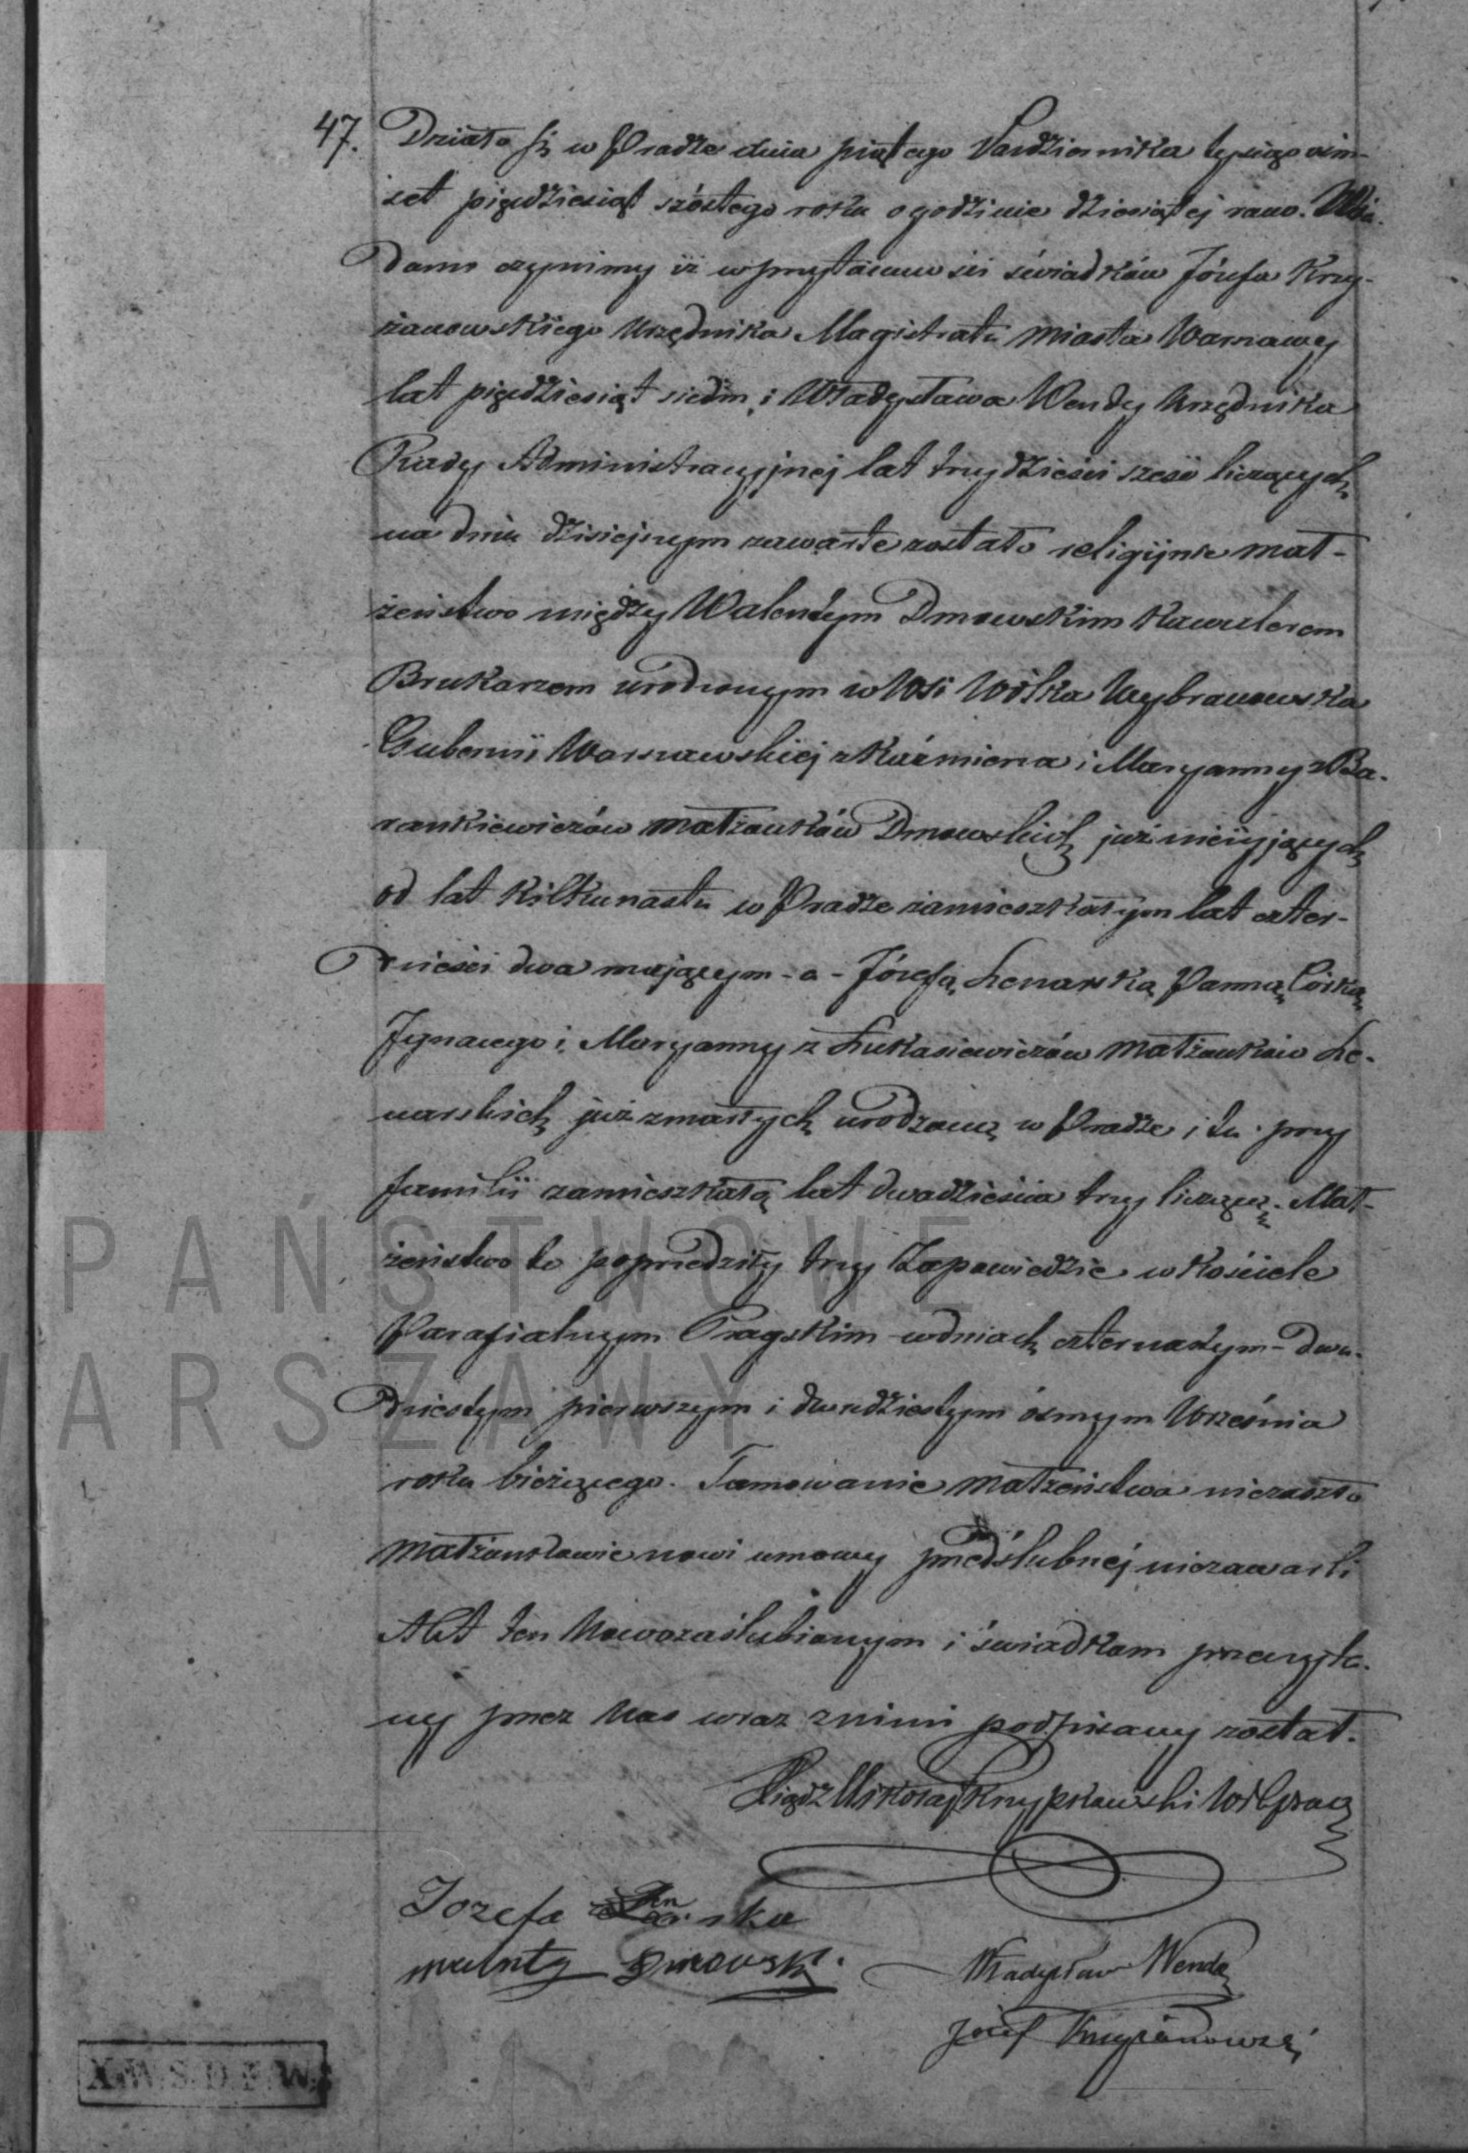 47. Działo się w Pradze dnia piątego Października tysiąc ośm-
set pięćdziesiąt szóstego roku o godzinie dziesiątej rano. Wia-
domo czynimy iż w przytomności świadków Józefa Krzy-
żanowskiego Urzędnika Magistratu Miasta Warszawy
lat pięćdziesiąt siedm, i Władysława Wendy Urzędnika
Rady Administracyjnej lat trzydzieści sześć liczących
na dniu dzisiejszym zawarte zostało religijnie mał-
żeństwo między Walentym Dmowskim Kawalerem
Brukarzem urodzonym w Wsi Wólka Wybranowska
Gubernii Warszawskiej z Kaźmierza i Maryanny z Ba-
rankiewiczów małżonków Dmowskich już nieżyjących
od lat kilkunastu w Pradze zamieszkałym lat czter-
dzieści dwa mającym - a - Józefą Lenarską Panną, Córką
Ignacego i Maryanny z Łukasiewiczów małżonków Le-
narskich już zmarłych urodzoną w Pradze i tu przy
familii zamieszkałą lat dwadzieścia trzy liczącą. Mał-
żeństwo to poprzedziły trzy Zapowiedzie w Kościele
Parafialnym Pragskim w dniach czternastym - dwu-
dziestym pierwszym i dwudziestym ósmym Września
roku bieżącego. Tamowanie małżeństwa niezaszło
Małżonkowie nowi umowy przedślubnéj niezawarli
Akt ten Nowozaślubionym i świadkom przeczyta-
ny przez Nas wraz z nimi podpisany został.
Xiądz Mikołaj Krzypkowski
Jozefa Lenarska
Walenty Dmowski
Władysław Wenda
Józef Krzyżanowski
PAŃSTWOWE
WARSZAWY
X.W.S.D.F.W.